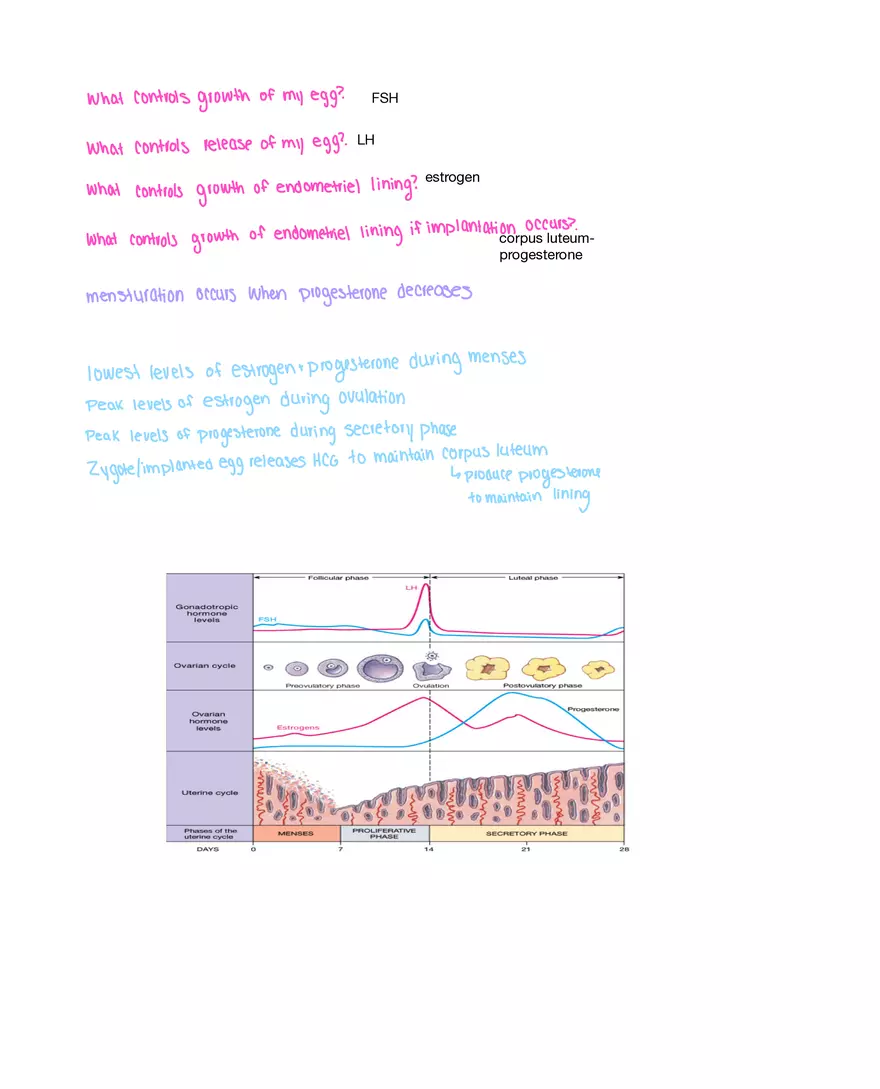 What controls growth of my egg?. FSH
What controls release of my egg?. LH
What controls growth of endometriel lining? estrogen
What controls growth of endometriel lining if implantation occurs?.
corpus luteum-
progesterone
mensturation occurs when progesterone decreases
lowest levels of estrogen + progesterone during menses
Peak levels of estrogen during ovulation
Peak levels of progesterone during secretory phase
Zygote/implanted egg releases HCG to maintain corpus luteum
↳ produce progesterone
to maintain lining
Follicular phase Luteal phase
LH
Gonadotropic
hormone
levels
FSH
Ovarian cycle
Preovulatory phase Ovulation Postovulatory phase
Ovarian
hormone
levels
Progesterone
Estrogens
Uterine cycle
Phases of the
uterine cycle
MENSES
PROLIFERATIVE
PHASE
SECRETORY PHASE
DAYS 0 7 14 21 28